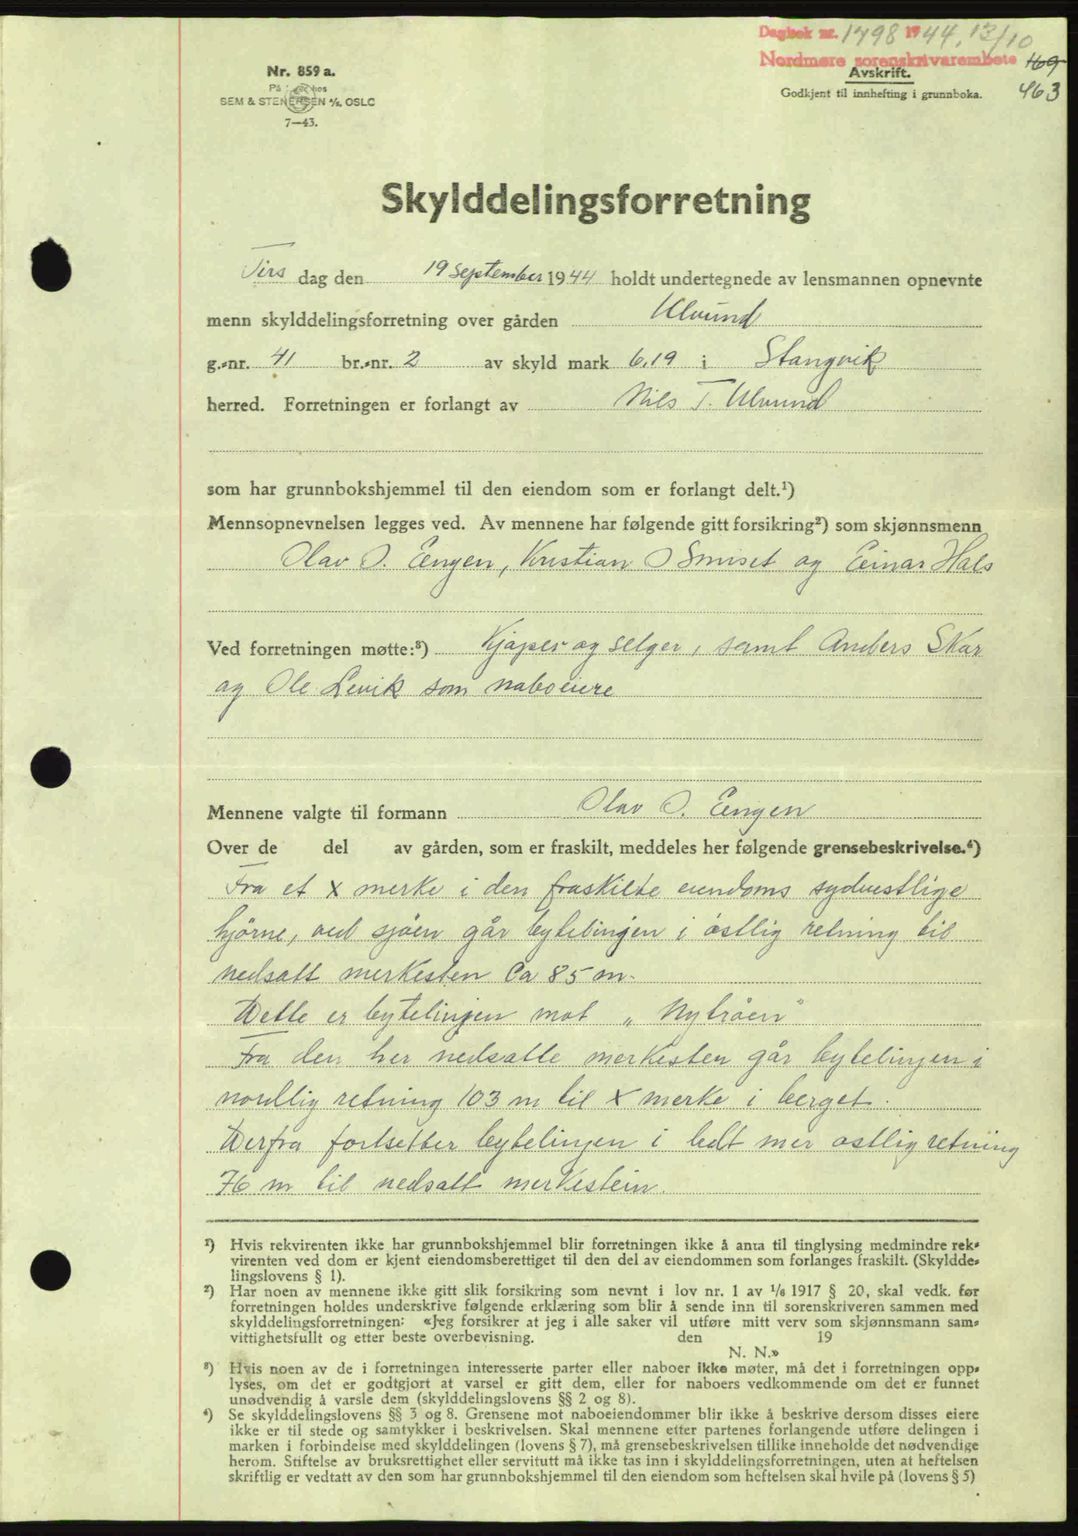 Dagbok nr. 1798 1944, 13/10
Nordmøre sorenskriverembete 169
463
Nr. 859 a.
SEM & STENERSEN A/S, OSLO
7—43.
Avskrift.
Godkjent til innhefting i grunnboka.
Skylddelingsforretning
Tirs dag den 19 september 1944 holdt undertegnede av lensmannen opnevnte
menn skylddelingsforretning over gården Ulvund
g.-nr. 41 br.-nr. 2 av skyld mark 6,19 i Stangvik
herred. Forretningen er forlangt av Nils T. Ulvund
som har grunnbokshjemmel til den eiendom som er forlangt delt.¹)
Mennsopnevnelsen legges ved. Av mennene har følgende gitt forsikring²) som skjønnsmenn
Olav O. Engen, Kristian O Smiset og Einar Hals
Ved forretningen møtte:³) Kjøper og selger, samt Anders Skar
og Ole Levik som naboeiere
Mennene valgte til formann Olav O. Engen
Over de del av gården, som er fraskilt, meddeles her følgende grensebeskrivelse.⁴)
Fra et x merke i den fraskilte eiendoms sydvestlige
hjörne, ved sjöen går bytelinjen i östlig retning til
nedsatt merkesten Ca 85 m.
Dette er bytelinjen mot „Nytrøen"
Fra den her nedsatte merkesten går bytelinjen i
nordlig retning 103 m til x merke i berget.
Derfra fortsetter bytelinjen i ledt mer ostlig retning
76 m til nedsatt merkestein.
¹) Hvis rekvirenten ikke har grunnbokshjemmel blir forretningen ikke å anta til tinglysing medmindre rek-
virenten ved dom er kjent eiendomsberettiget til den del av eiendommen som forlanges fraskilt. (Skyldde-
lingslovens § 1).
²) Har noen av mennene ikke gitt slik forsikring som nevnt i lov nr. 1 av 1/6 1917 § 20, skal vedk. før
forretningen holdes underskrive følgende erklæring som blir å sende inn til sorenskriveren sammen med
skylddelingsforretningen: «Jeg forsikrer at jeg i alle saker vil utføre mitt verv som skjønnsmann sam-
vittighetsfullt og etter beste overbevisning. den 19
N. N.»
³) Hvis noen av de i forretningen interesserte parter eller naboer ikke møter, må det i forretningen opp-
lyses, om det er godtgjort at varsel er gitt dem, eller for naboers vedkommende om det er funnet
unødvendig å varsle dem (skylddelingslovens §§ 2 og 8).
⁴) Se skylddelingslovens §§ 3 og 8. Grensene mot naboeiendommer blir ikke å beskrive dersom disses eiere
ikke er til stede og samtykker i beskrivelsen. Skal mennene etter partenes forlangende utføre delingen i
marken i forbindelse med skylddelingen (lovens § 7), må grensebeskrivelsen tillike inneholde det nødvendige
herom. Stiftelse av bruksrettighet eller servitutt må ikke tas inn i skylddelingsforretningen, uten at heftelsen
skriftlig er vedtatt av den som har grunnbokshjemmel til den eiendom som heftelsen skal hvile på (lovens § 5)